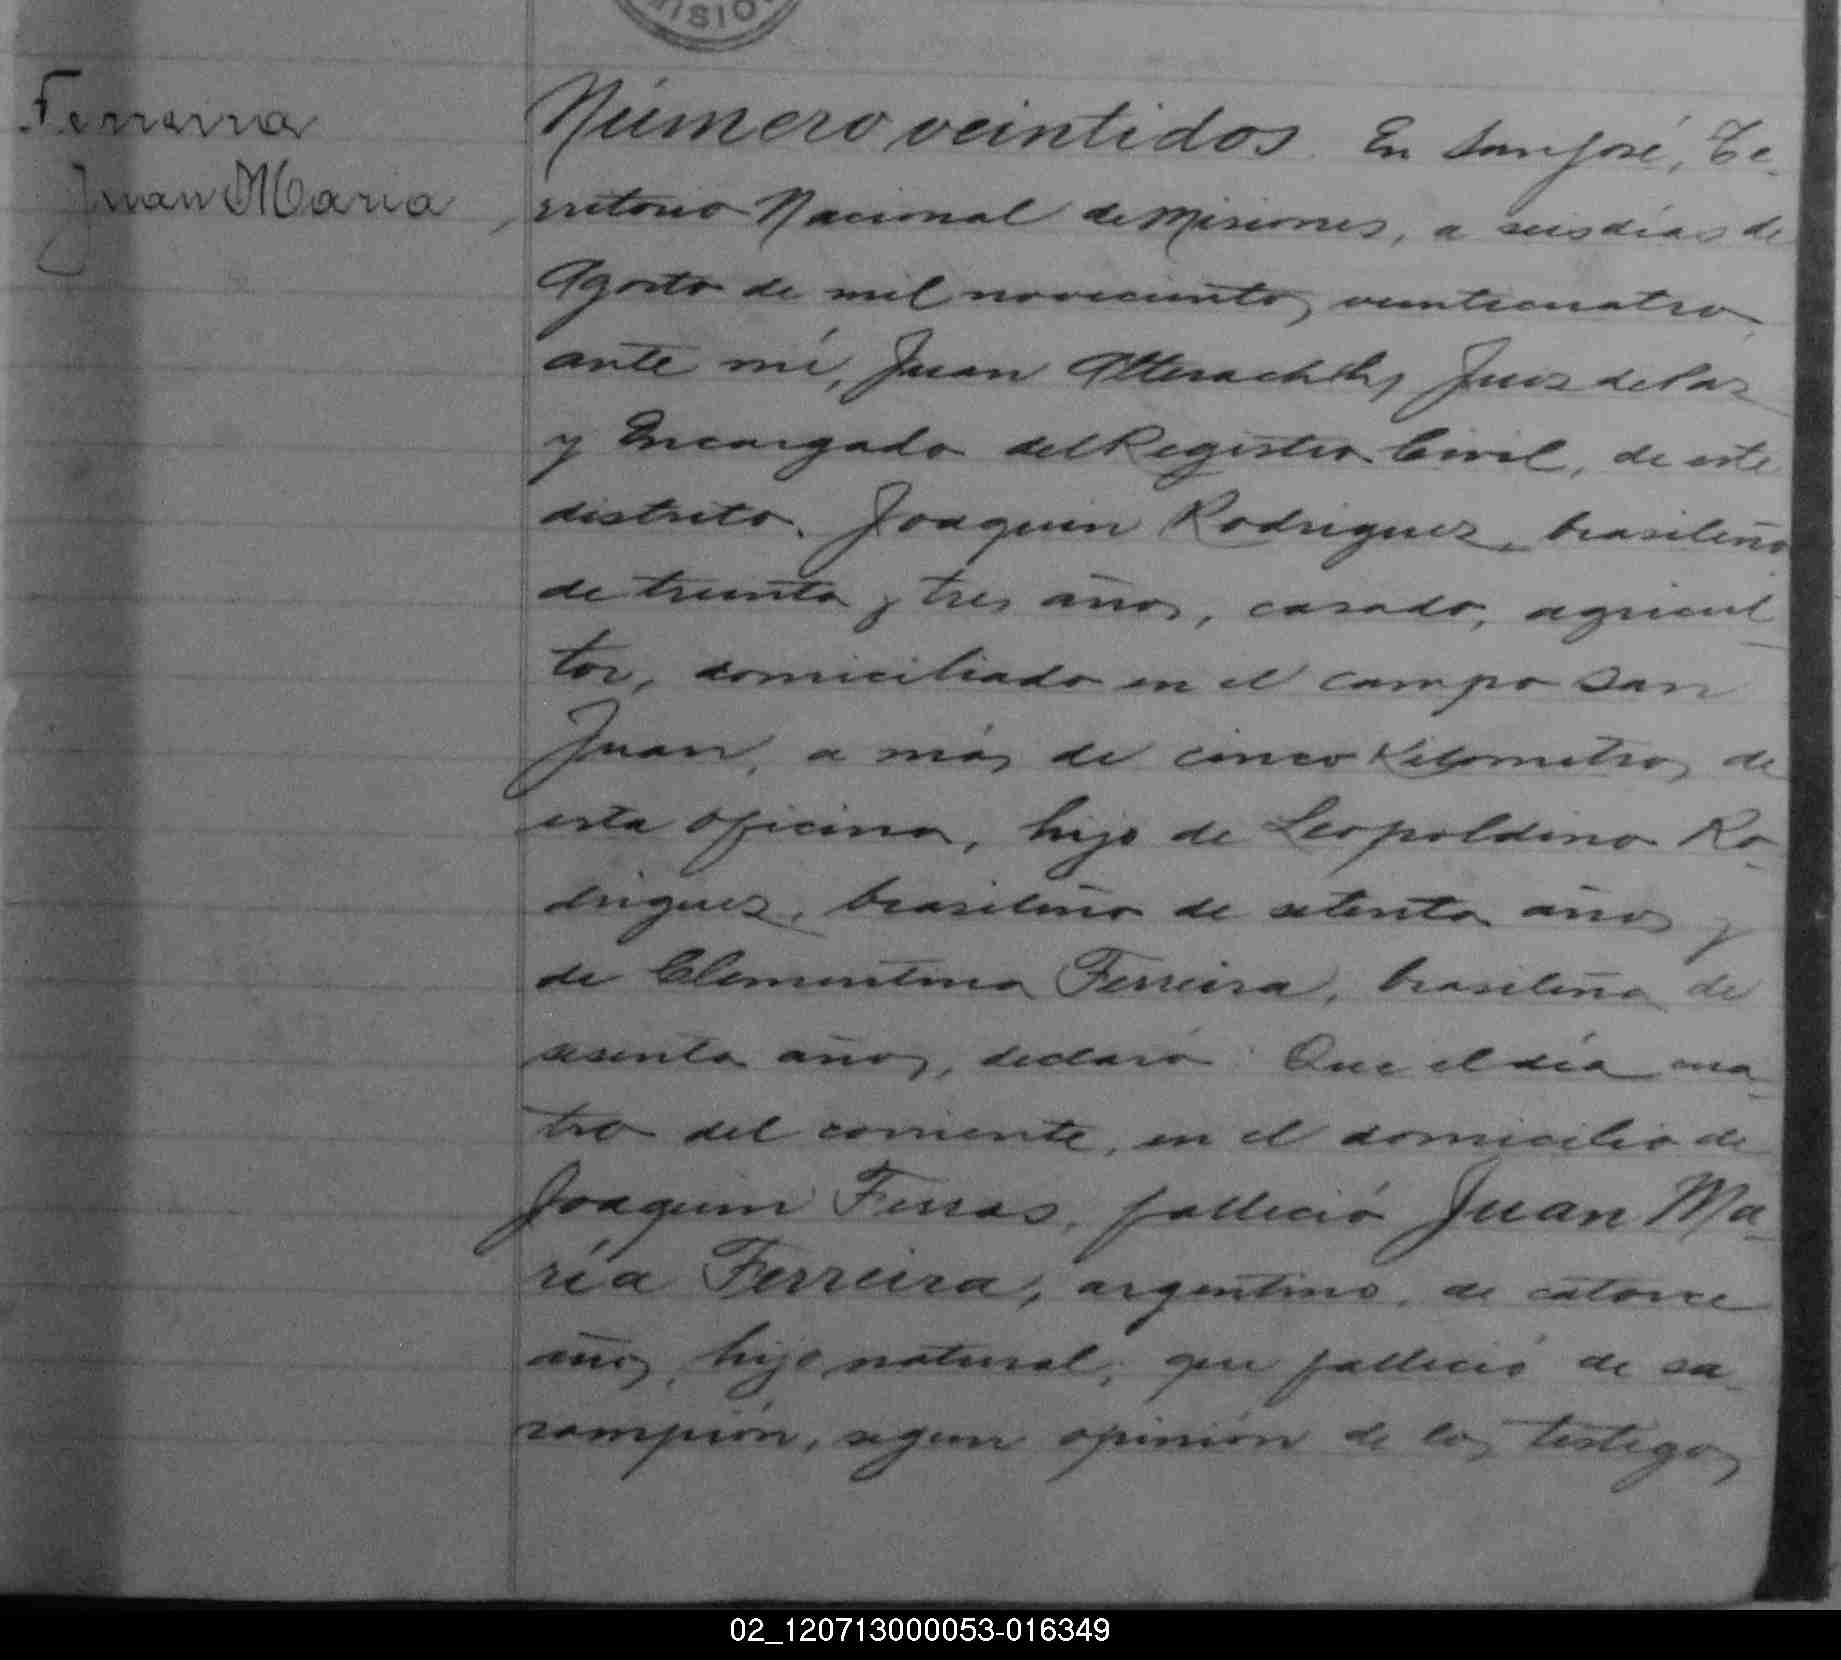 MISIO
Ferreira
Juan Maria
Número veintidos. En San José, Te-
rritorio Nacional de Misiones, a seis dias de
Agosto de mil novecientos veinticuatro
ante mí, Juan Juez de Paz
y Encargado del Registro Civil, de este
distrito, Joaquin Rodriguez, brasileño
de treinta y tres años, casado, agricul-
tor, domiciliado en el campo San
Juan, a más de cinco Kilometros de
esta oficina, hijo de Leopoldino Ro-
driguez, brasileño de setenta años y
de Clementina Ferreira, brasileña de
sesenta años, declaró: Que el día cua-
tro del corriente, en el domicilio de
Joaquin Ferras, falleció Juan Ma-
ría Ferreira, argentino, de catorce
años, hijo natural, que falleció de sa-
rampión, segun opinión de los testigos
02_120713000053-016349